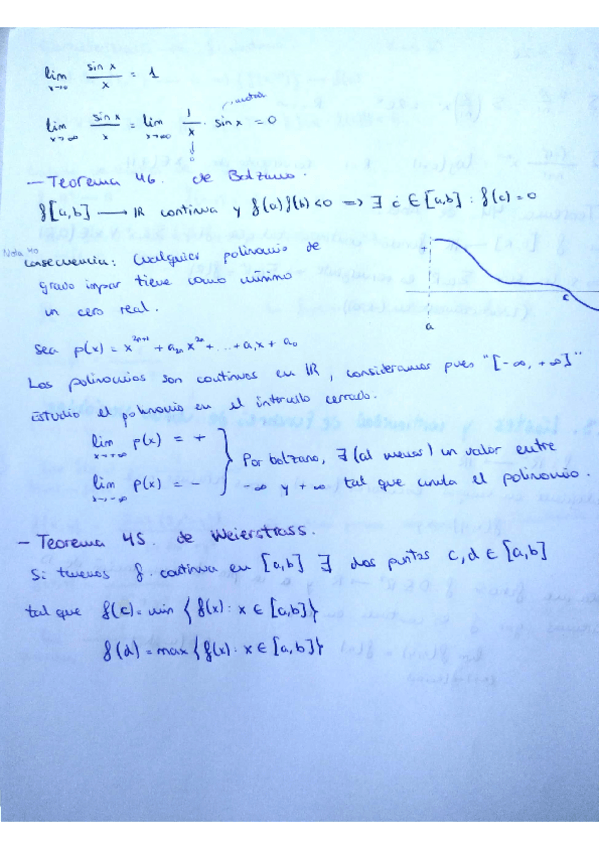 lim x→0 sin x / x = 1
lim x→∞ sin x / x = lim x→∞ 1/x · sin x = 0
acotada
0
— Teorema 46. de Bolzano.
f[a,b] → IR continua y f(a)f(b)<0 => ∃ c ∈ [a,b] : f(c)=0
Nota 40
Consecuencia: Cualquier polinomio de
grado impar tiene como mínimo
un cero real.
+
c
a
Sea p(x) = x^{2n+1} + a_{2n} x^{2n} + ... + a_1 x + a_0
Los polinomios son continuos en IR, consideramos pues "[-∞, +∞]"
Estudio el polinomio en el intervalo cerrado.
lim x→∞ p(x) = +
lim x→-∞ p(x) = -
} Por bolzano, ∃ (al menos) un valor entre
-∞ y +∞ tal que anula el polinomio.
— Teorema 45. de Weierstrass.
Si tenemos f. continua en [a,b] ∃ dos puntos c,d ∈ [a,b]
tal que f(c) = min {f(x): x ∈ [a,b]}
f(d) = max {f(x): x ∈ [a,b]}